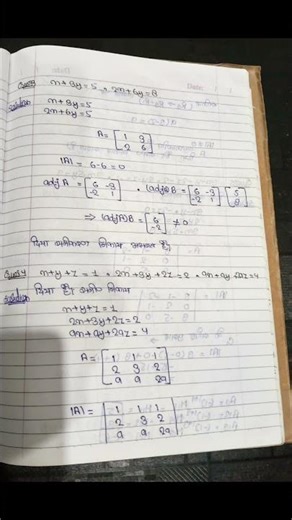 Date: / /
Ques 3 x + 3y = 5, 2x + 6y = 8
Solution x + 3y = 5
2x + 6y = 5
A = [1 3
2 6]
|A| = 6-6 = 0
adj A = [6 -3
-2 1] , (adj A)B = [6 -3
-2 1] [5
8]
⇒ (adj A)B = [6
-2] ≠ 0
दिया समीकरण निकाय असंगत है।
Ques 4 x + y + z = 1, 2x + 3y + 2z = 2, ax + ay + 2az = 4
Solution दिया है। समी० निकाय
x + y + z = 1
2x + 3y + 2z = 2
ax + ay + 2az = 4
A = [1 1 1
2 3 2
a a 2a]
|A| = |1 1 1
2 3 2
a a 2a|